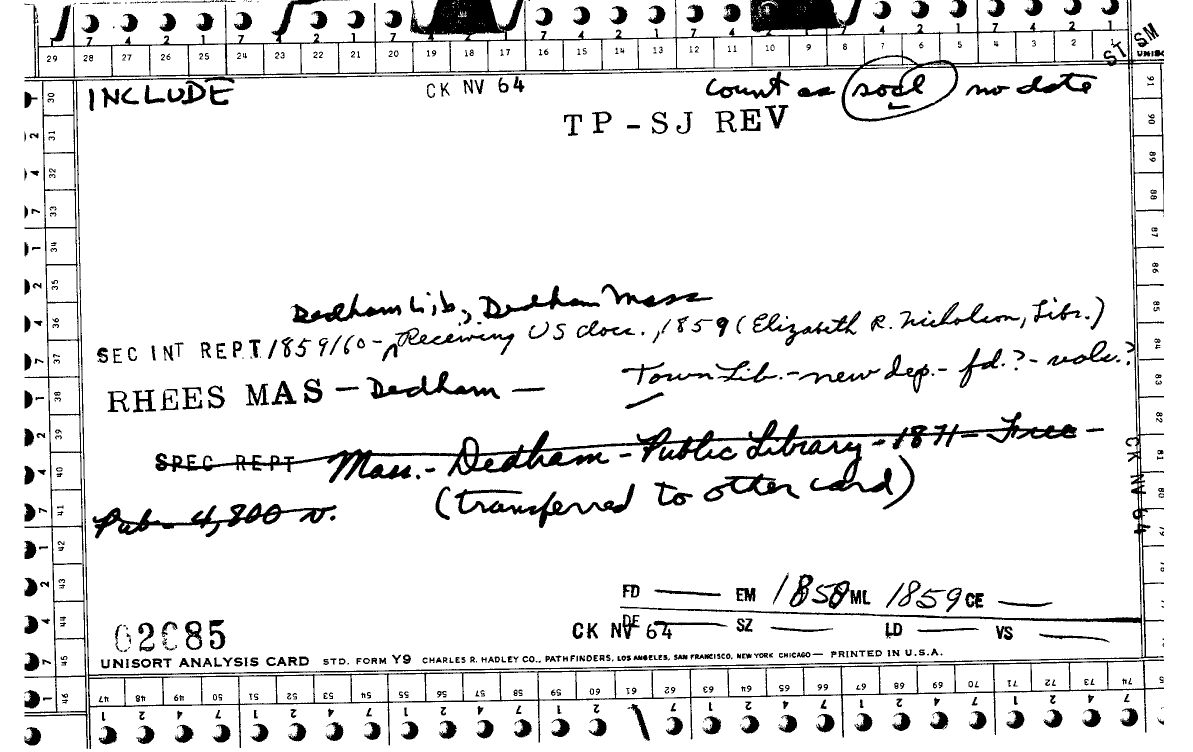 7 4 2 1 7 4 2 1 7 4 2 1 7 4 2 1 7 4 2 1
29 28 27 26 25 24 23 22 21 20 19 18 17 16 15 14 13 12 11 10 9 8 7 6 5 4 3 2 1
ST SM
UNISO
INCLUDE CK NV 64 count as socl no date
TP-SJ REV
Dedham Lib, Dedham Mass
SEC INT REPT 1859/60 - Receiving US docs., 1859 (Elizabeth R. Nicholson, Libr.)
RHEES MAS - Dedham - Town Lib. - new dep. - fd.? - vols.?
SPEC REPT Mass. - Dedham - Public Library - 1871 - Free -
Pub - 4,800 v. (transferred to other card)
CK NV 64
FD — EM 1858 ML 1859 CE —
02085 CK NV 64 DE — SZ — LD — VS —
UNISORT ANALYSIS CARD STD. FORM Y9 CHARLES R. HADLEY CO., PATHFINDERS, LOS ANGELES, SAN FRANCISCO, NEW YORK CHICAGO — PRINTED IN U.S.A.
47 48 49 50 51 52 53 54 55 56 57 58 59 60 61 62 63 64 65 66 67 68 69 70 71 72 73 74